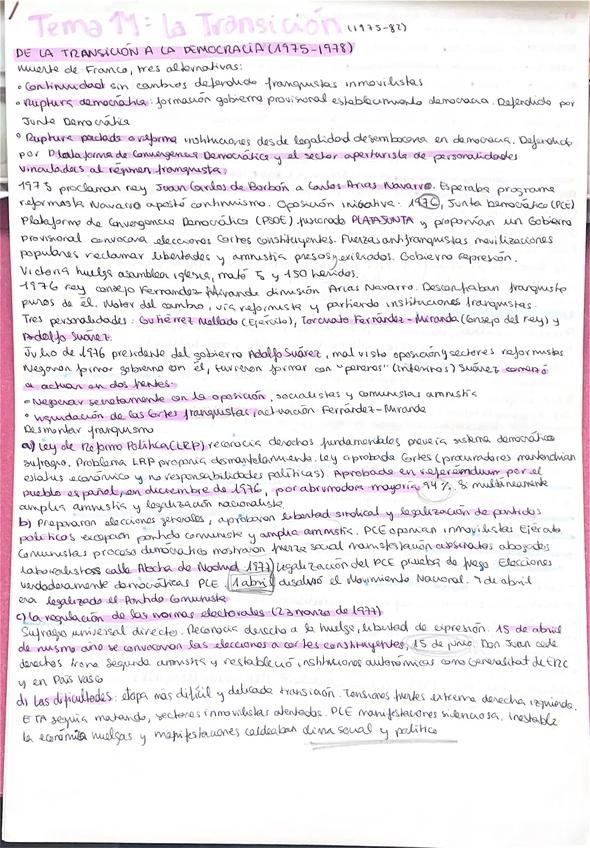 Tema 14: la Transición (1975-82)
DE LA TRANSICIÓN A LA DEMOCRACIA (1975-1978)
Muerte de Franco, tres alternativas:
• Continuidad sin cambios defendido franquistas inmovilistas
• Ruptura democrática: formación gobierno provisional establecimiento democracia. Defendido por
Junta Democrática
• Ruptura pactada o reforma instituciones desde legalidad desembocara en democracia. Defendido
por Plataforma de Convergencia Democrática y el sector aperturista de personalidades
vinculadas al régimen franquista.
1975 proclaman rey Juan Carlos de Borbón a Carlos Arias Navarro. Esperaba programa
reformista Navarro apostó continuismo. Oposición iniciativa: 1976, Junta Democrática (PCE)
Plataforma de Convergencia Democrática (PSOE) fusionado PLATAJUNTA y proponían un Gobierno
Provisional convocara elecciones Cortes constituyentes. Fuerzas antifranquistas movilizaciones
populares reclamar libertades y amnistía presos y exiliados. Gobierno represión.
Victoria huelga asamblea iglesia, mató 5 y 150 heridos.
1976 rey consejo Fernández-Miranda dimisión Arias Navarro. Desconfiaban franquista
puros de él. Motor del cambio, vía reformista y partiendo instituciones franquistas.
Tres personalidades: Gutiérrez Mellado (Ejército), Torcuato Fernández-Miranda (Consejo del Rey) y
Adolfo Suárez.
Julio de 1976 presidente del gobierno Adolfo Suárez, mal visto oposición y sectores reformistas
Negaron formar gobierno con él, tuvieron formar con "penenes" (interinos) Suárez comenzó
a actuar en dos frentes:
• Negociar secretamente con la oposición, socialistas y comunistas amnistía
• Liquidación de las Cortes franquistas, activación Fernández-Miranda
Desmontar franquismo
a) Ley de Reforma Política (LRP) reconocía derechos fundamentales preveía sistema democrático
sufragio. Problema LRP proponía desmantelamiento. Ley aprobada Cortes (procuradores mantendrían
estatus económico y no responsabilidades políticas). Aprobada en referéndum por el
pueblo español, en diciembre de 1976, por abrumadora mayoría 94%. Simultáneamente
amplia amnistía y legalización nacionalista.
b) Prepararon elecciones generales, aprobaron libertad sindical y legalización de partidos
políticos excepción partido comunista y amplia amnistía. PCE oponían inmovilistas Ejército.
Comunistas proceso democrático mostraron fuerza social manifestación asesinatos abogados
laboralistas calle Atocha de Madrid 1977. Legalización del PCE prueba de fuego Elecciones
verdaderamente democráticas PCE. 1 abril disolvió el Movimiento Nacional. 9 de abril
era legalizado el Partido Comunista
c) La regulación de las normas electorales (23 marzo de 1977)
Sufragio universal directo. Reconocía derecho a la huelga, libertad de expresión. 15 de abril
de mismo año se convocaron las elecciones a cortes constituyentes, 15 de junio. Don Juan cede
derechos trono segunda amnistía y restableció instituciones autonómicas como Generalitat de ERC
y en País Vasco
d) Las dificultades: etapa más difícil y delicada transición. Tensiones fuertes extrema derecha izquierda.
ETA seguía matando, sectores inmovilistas atentados. PCE manifestaciones silenciosa. Inestable
la económica huelgas y manifestaciones caldeaban clima social y político